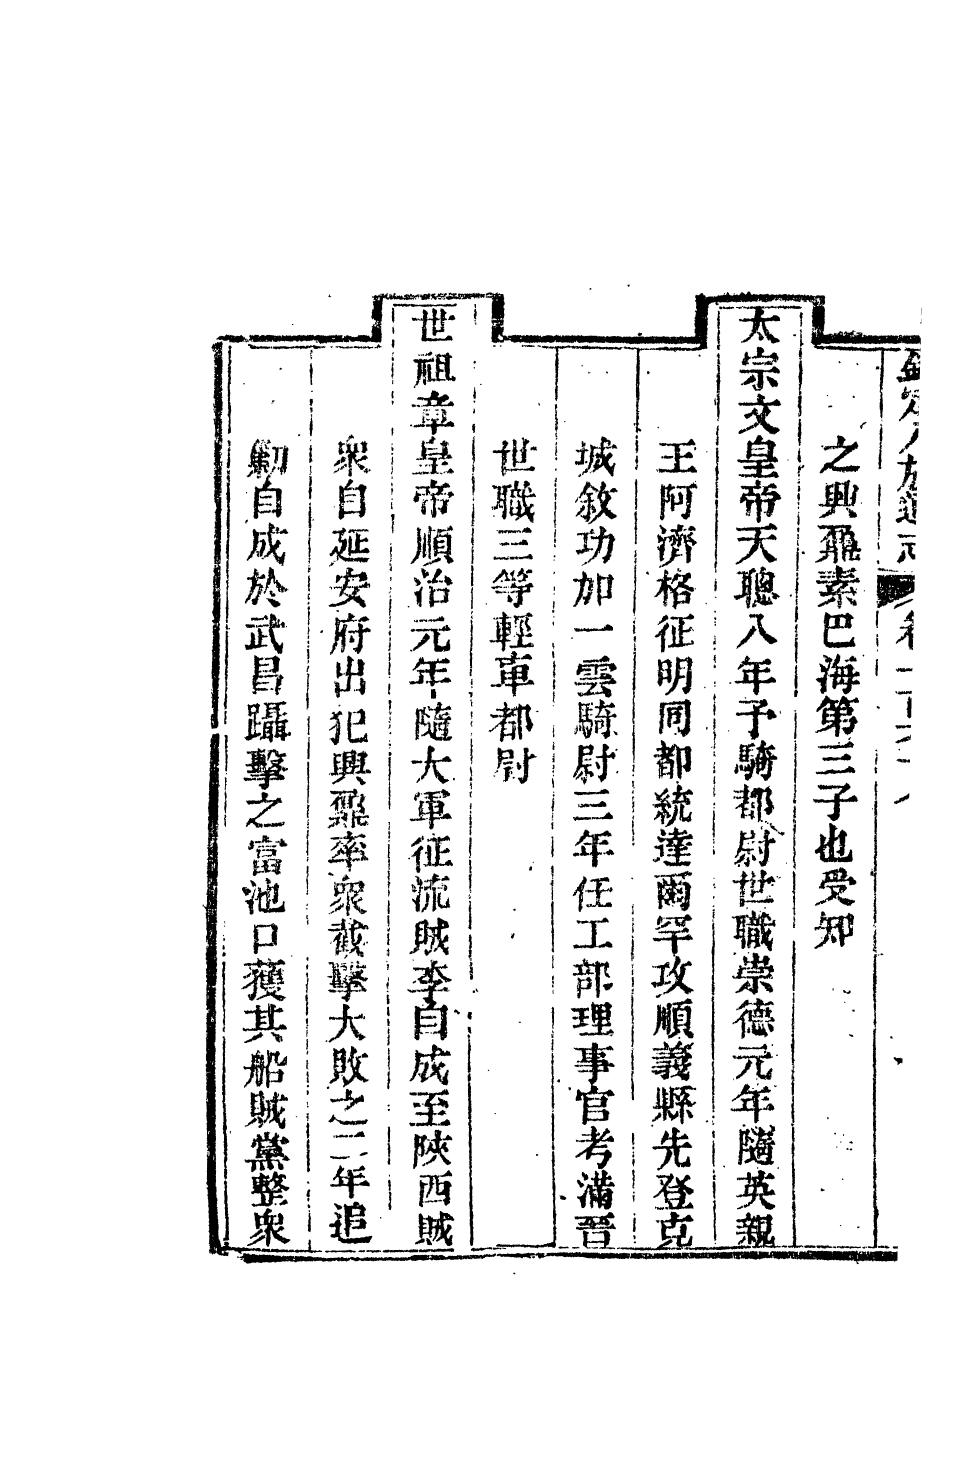 欽定八旗通志 卷一百六十八
之興鼐素巴海第三子也受知
太宗文皇帝天聰八年予騎都尉世職崇德元年隨英親
王阿濟格征明同都統達爾罕攻順義縣先登克
城敘功加一雲騎尉三年任工部理事官考滿晉
世職三等輕車都尉
世祖章皇帝順治元年隨大軍征流賊李自成至陝西賊
衆自延安府出犯興鼐率衆截擊大敗之二年追
勦自成於武昌躡擊之富池口獲其船賊黨整衆